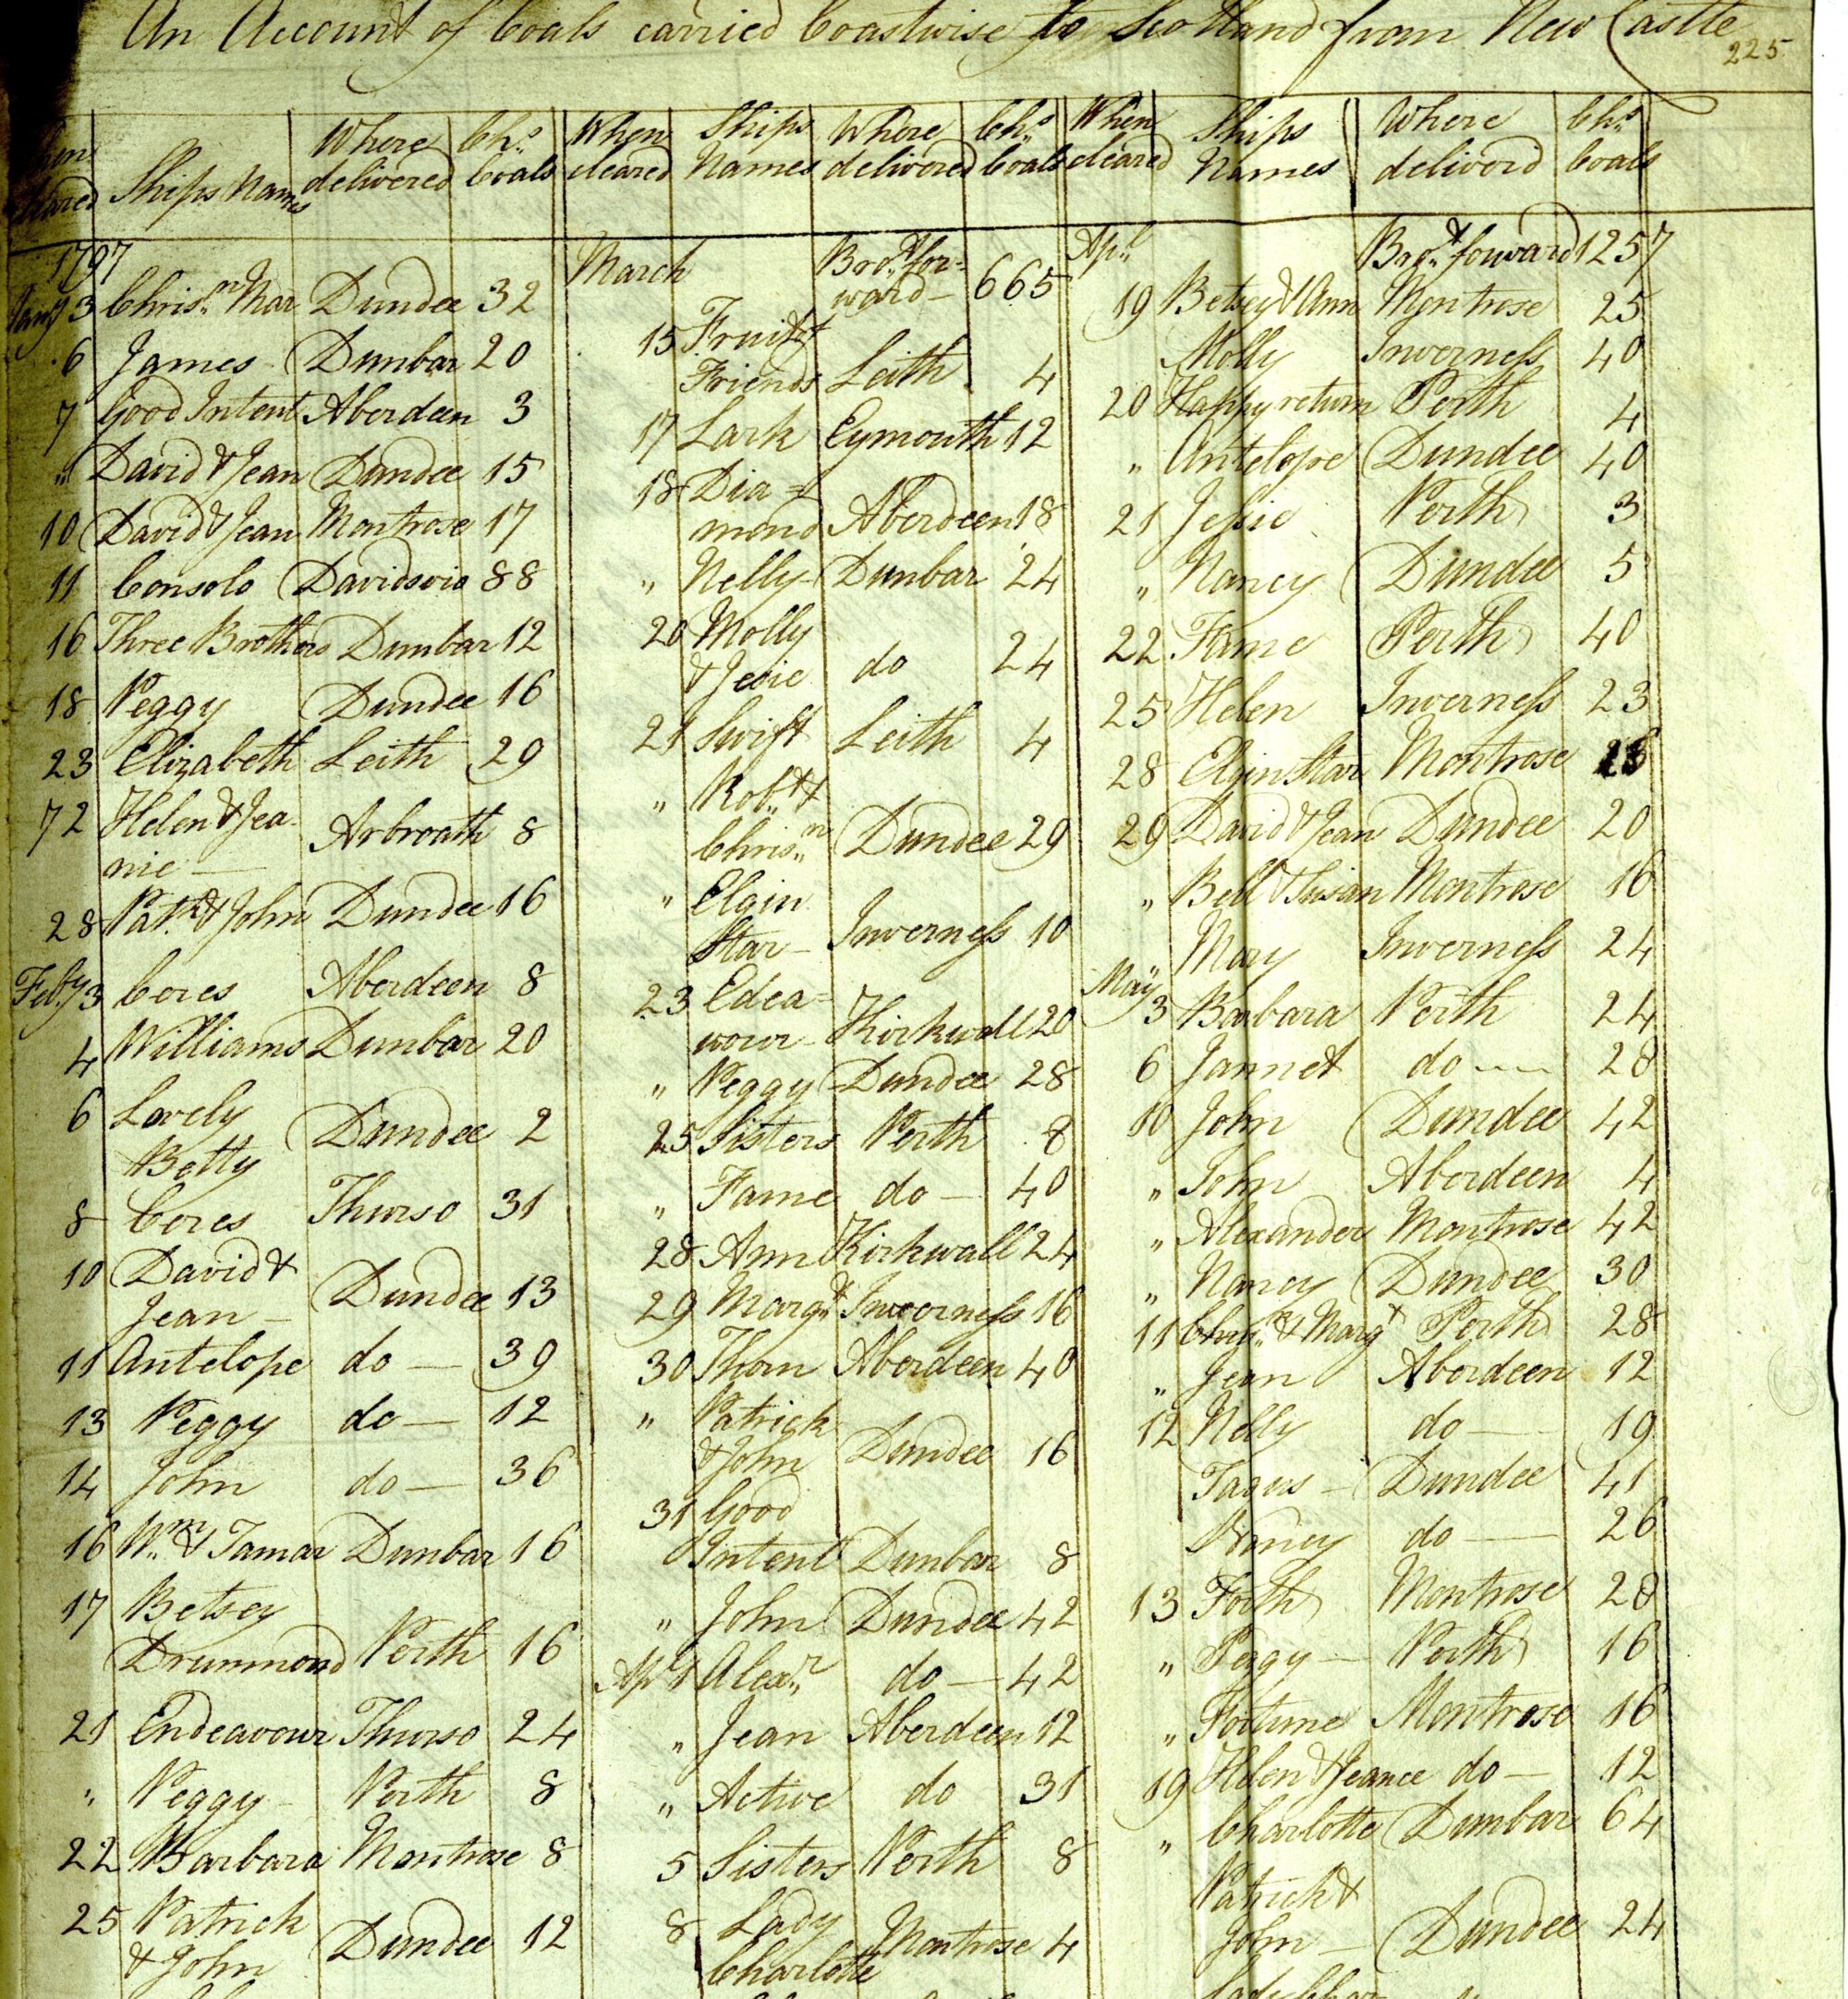 An Account of Coals carried Coastwise to Scotland from New Castle
225
cleared Ships Names Where delivered Chs. Coals
1797
Jany 3 Chrisn. Mar Dundee 32
6 James Dunbar 20
7 Good Intent Aberdeen 3
" David & Jean Dundee 15
10 David & Jean Montrose 17
11 Consolo 88
16 Three Brothers Dunbar 12
18 Peggy Dundee 16
23 Elizabeth Leith 29
72 Helen & Jea-
nie Arbroath 8
28 Patk. & John Dundee 16
Feby 3 Ceres Aberdeen 8
4 Williams Dunbar 20
6 Lovely
Betty Dundee 2
8 Ceres Thurso 31
10 David &
Jean Dundee 13
11 Antelope do 39
13 Peggy do 12
14 John do 36
16 Wm. & Tamar Dunbar 16
17 Betsey
Drummond Perth 16
21 Endeavour Thurso 24
" Peggy Perth 8
22 Barbara Montrose 8
25 Patrick
& John Dundee 12
When cleared Ships Names Where delivered Chs. Coals
March Brot. for=
ward 665
15 Fruit &
Friends Leith 4
17 Lark Eymouth 12
18 Dia=
mond Aberdeen 18
" Nelly Dunbar 24
20 Molly
& Jesie do 24
21 Swift Leith 4
" Robt. &
Chrisn. Dundee 29
" Elgin
Star Inverness 10
23 Edea=
vour Kirkwall 20
" Peggy Dundee 28
25 Sisters Perth 8
" Fame do 40
28 Ann Kirkwall 24
29 Margt. Inverness 16
30 Thorn Aberdeen 40
" Patrick
& John Dundee 16
31 Good
Intent Dunbar 8
" John Dundee 42
Apl 1 Alexr. do 42
" Jean Aberdeen 12
" Active do 31
5 Sisters Perth 8
8 Lady
Charlotte Montrose 4
When cleared Ships Names Where deliverd Chs. Coals
Apl. Brot. forward 1257
19 Betsey & Ann Montrose 25
Molly Inverness 40
20 Happy return Perth 4
" Antelope Dundee 40
21 Jessie Perth 3
" Nancy Dundee 5
22 Fame Perth 40
25 Helen Inverness 23
28 Elgin Star Montrose
29 David & Jean Dundee 20
" Bell & Susan Montrose 16
" Mary Inverness 24
May 3 Barbara Perth 24
6 Jannet do 28
10 John Dundee 42
" John Aberdeen 4
" Alexander Montrose 42
" Nancy Dundee 30
11 Chrisn. & Margt Perth 28
" Jean Aberdeen 12
12 Nelly do 19
Tagus Dundee 41
Nancy do 26
13 Forth Montrose 28
" Peggy Perth 16
" Fortune Montrose 16
19 Helen & Jeance do 12
" Charlotte Dunbar 64
Patrick &
John Dundee 24